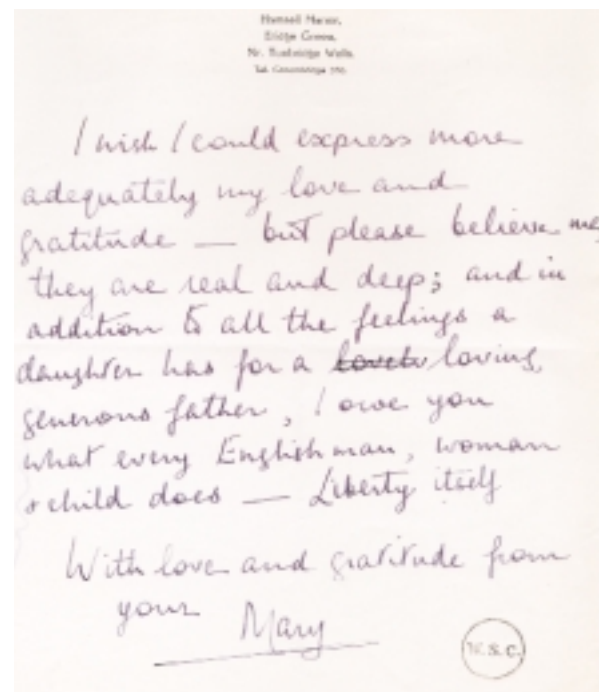 Hamsell Manor,
Eridge Green,
Nr. Tunbridge Wells.
Tel.
I wish I could express more
adequately my love and
gratitude — but please believe me
they are real and deep; and in
addition to all the feelings a
daughter has for a loving,
generous father, I owe you
what every Englishman, woman
& child does — Liberty itself
With love and gratitude from
your
Mary
W.S.C.